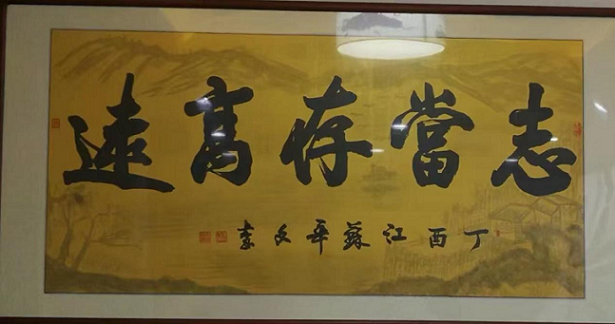 志當存高遠
丁酉江蘇平文書